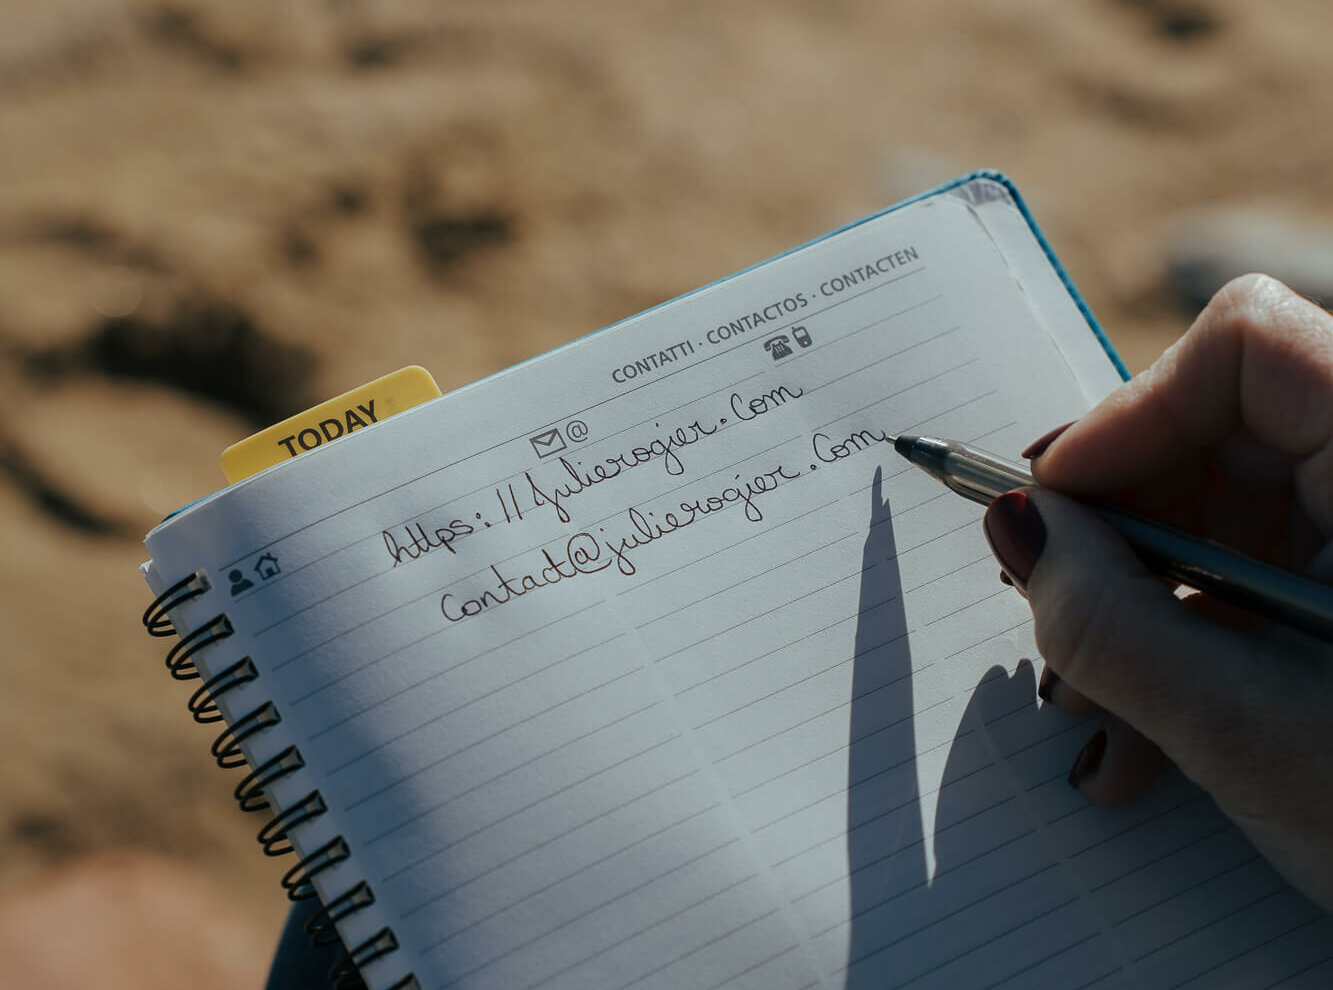 CONTATTI · CONTACTOS · CONTACTEN
TODAY
@
https://julierogier.com
Contact@julierogier.com